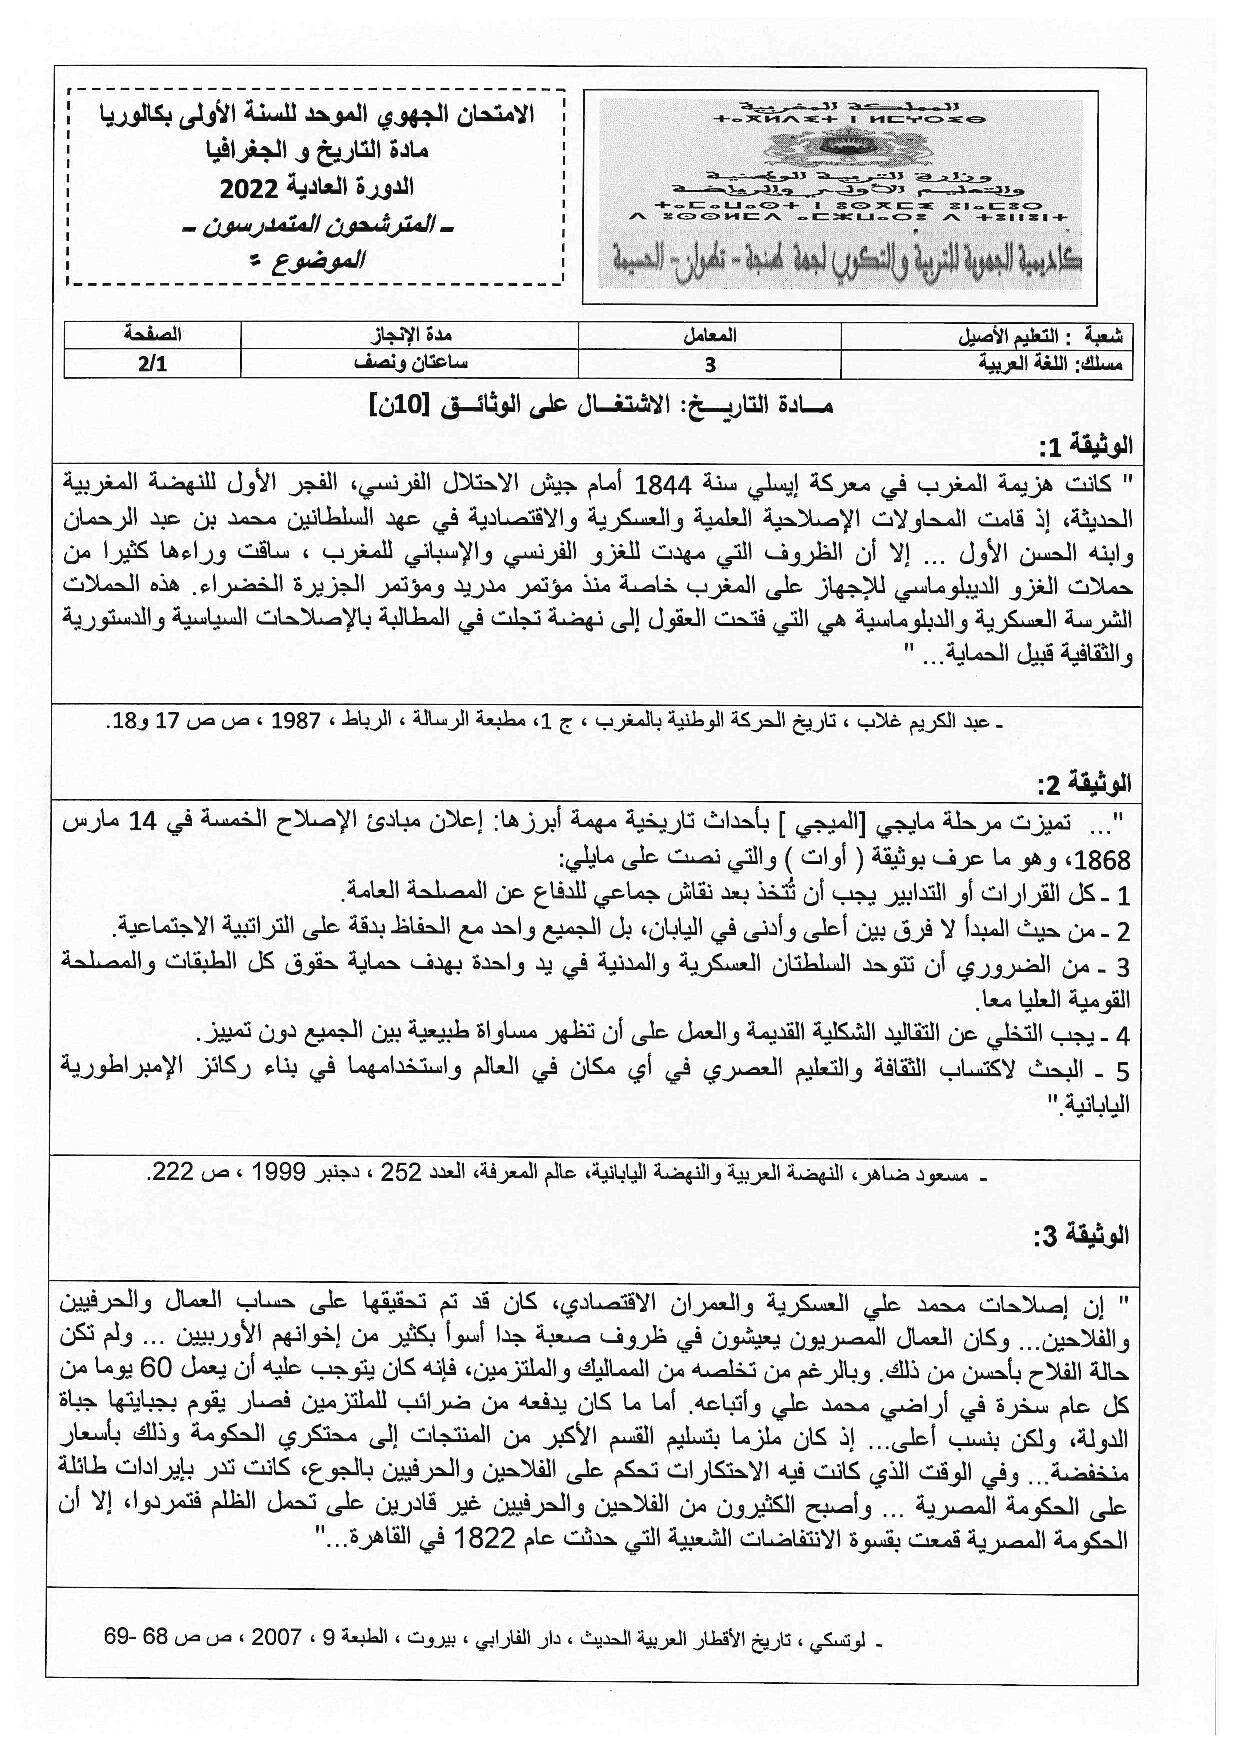 المملكة المغربية
ⵜⴰⴳⵍⴷⵉⵜ ⵏ ⵍⵎⵖⵔⵉⴱ
وزارة التربية الوطنية
والتعليم الأولي والرياضة
كاديمية الجهوية للتربية والتكوين لجهة طنجة - تطوان - الحسيمة
الامتحان الجهوي الموحد للسنة الأولى بكالوريا
مادة التاريخ و الجغرافيا
الدورة العادية 2022
ـ المترشحون المتمدرسون ـ
الموضوع
شعبة : التعليم الأصيل المعامل مدة الإنجاز الصفحة
مسلك: اللغة العربية 3 ساعتان ونصف 2/1
مــادة التاريــخ: الاشتغــال على الوثائــق [10ن]
الوثيقة 1:
" كانت هزيمة المغرب في معركة إيسلي سنة 1844 أمام جيش الاحتلال الفرنسي، الفجر الأول للنهضة المغربية
الحديثة، إذ قامت المحاولات الإصلاحية العلمية والعسكرية والاقتصادية في عهد السلطانين محمد بن عبد الرحمان
وابنه الحسن الأول ... إلا أن الظروف التي مهدت للغزو الفرنسي والإسباني للمغرب ، ساقت وراءها كثيرا من
حملات الغزو الديبلوماسي للإجهاز على المغرب خاصة منذ مؤتمر مدريد ومؤتمر الجزيرة الخضراء. هذه الحملات
الشرسة العسكرية والدبلوماسية هي التي فتحت العقول إلى نهضة تجلت في المطالبة بالإصلاحات السياسية والدستورية
والثقافية قبيل الحماية... "
ـ عبد الكريم غلاب ، تاريخ الحركة الوطنية بالمغرب ، ج 1، مطبعة الرسالة ، الرباط ، 1987 ، ص ص 17 و18.
الوثيقة 2:
"... تميزت مرحلة مايجي [الميجي ] بأحداث تاريخية مهمة أبرزها: إعلان مبادئ الإصلاح الخمسة في 14 مارس
1868، وهو ما عرف بوثيقة ( أوات ) والتي نصت على مايلي:
1 ـ كل القرارات أو التدابير يجب أن تُتخذ بعد نقاش جماعي للدفاع عن المصلحة العامة.
2 ـ من حيث المبدأ لا فرق بين أعلى وأدنى في اليابان، بل الجميع واحد مع الحفاظ بدقة على التراتبية الاجتماعية.
3 ـ من الضروري أن تتوحد السلطتان العسكرية والمدنية في يد واحدة بهدف حماية حقوق كل الطبقات والمصلحة
القومية العليا معا.
4 ـ يجب التخلي عن التقاليد الشكلية القديمة والعمل على أن تظهر مساواة طبيعية بين الجميع دون تمييز.
5 ـ البحث لاكتساب الثقافة والتعليم العصري في أي مكان في العالم واستخدامهما في بناء ركائز الإمبراطورية
اليابانية."
ـ مسعود ضاهر، النهضة العربية والنهضة اليابانية، عالم المعرفة، العدد 252 ، دجنبر 1999 ، ص 222.
الوثيقة 3:
" إن إصلاحات محمد علي العسكرية والعمران الاقتصادي، كان قد تم تحقيقها على حساب العمال والحرفيين
والفلاحين... وكان العمال المصريون يعيشون في ظروف صعبة جدا أسوأ بكثير من إخوانهم الأوربيين ... ولم تكن
حالة الفلاح بأحسن من ذلك. وبالرغم من تخلصه من المماليك والملتزمين، فإنه كان يتوجب عليه أن يعمل 60 يوما من
كل عام سخرة في أراضي محمد علي وأتباعه. أما ما كان يدفعه من ضرائب للملتزمين فصار يقوم بجبايتها جباة
الدولة، ولكن بنسب أعلى... إذ كان ملزما بتسليم القسم الأكبر من المنتجات إلى محتكري الحكومة وذلك بأسعار
منخفضة... وفي الوقت الذي كانت فيه الاحتكارات تحكم على الفلاحين والحرفيين بالجوع، كانت تدر بإيرادات طائلة
على الحكومة المصرية ... وأصبح الكثيرون من الفلاحين والحرفيين غير قادرين على تحمل الظلم فتمردوا، إلا أن
الحكومة المصرية قمعت بقسوة الانتفاضات الشعبية التي حدثت عام 1822 في القاهرة..."
ـ لوتسكي ، تاريخ الأقطار العربية الحديث ، دار الفارابي ، بيروت ، الطبعة 9 ، 2007 ، ص ص 68 -69